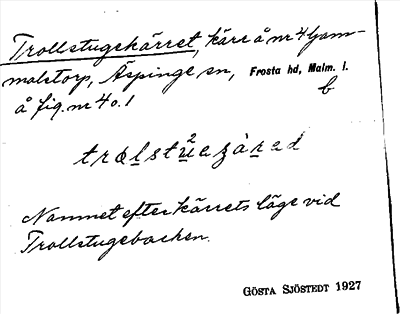 Trollstugekärret, kärr å nr 4 Gam-
malstorp, Äspinge sn, Frosta hd, Malm. l.
å fig. nr 4 o. 1 b
Namnet efter kärrets läge vid
Trollstugebacken.
GÖSTA SJÖSTEDT 1927